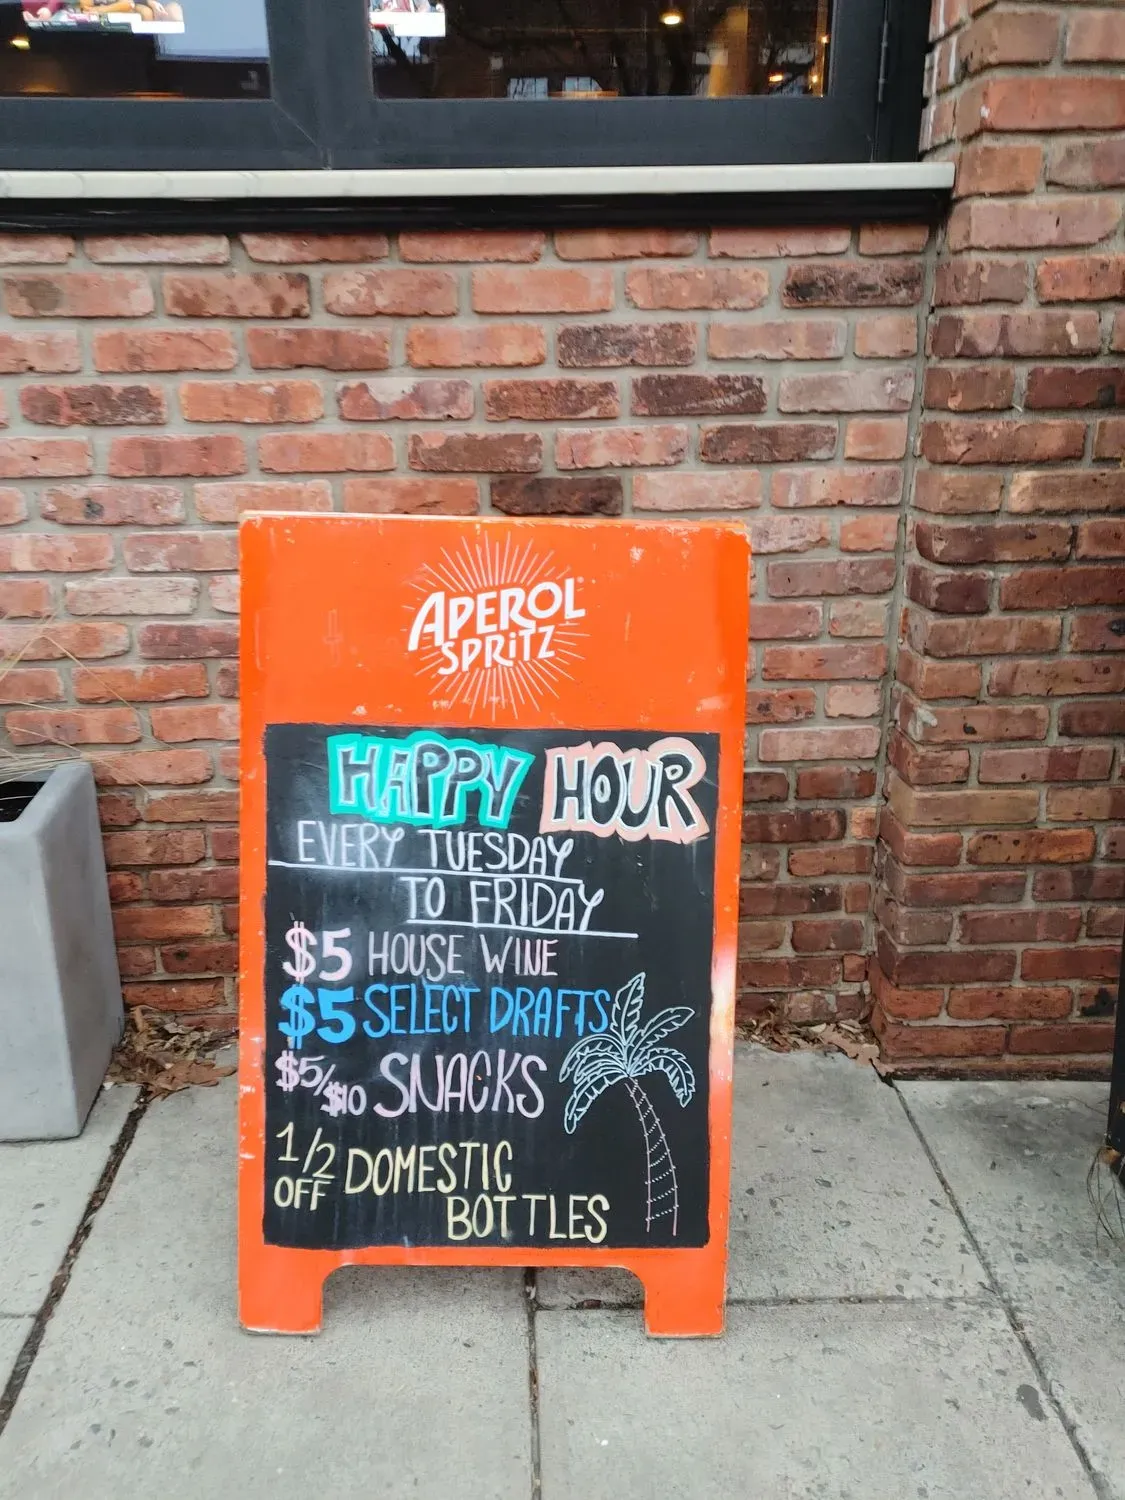 APEROL
SPRITZ
HAPPY HOUR
EVERY TUESDAY
TO FRIDAY
$5 HOUSE WINE
$5 SELECT DRAFTS
$5/$10 SNACKS
1/2 OFF DOMESTIC
BOTTLES